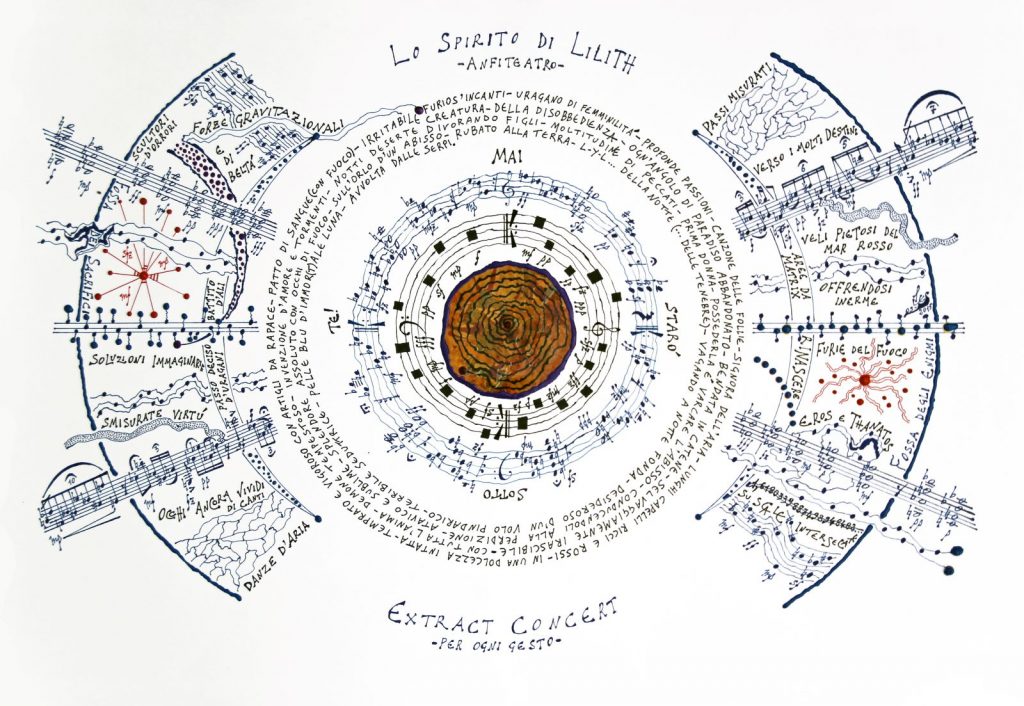 Lo Spirito di Lilith
-Anfiteatro-
Scultori d'orrori
Forze gravitazionali
e di beltà
Sacrificio
Battito d'ali
Soluzioni immaginarie
Passo deciso
d'uragani
Smisurate virtù
Occhi ancora vividi
di canti
Danze d'aria
Furios'incanti-uragano di femminilità-
profonde passioni-canzone delle follie-signora dell'aria-lunghi capelli ricci e rossi-in una dolcezza intrapa-temprato e vigoroso con artigli da rapace-patto di sangue(con fuoco)-irritabile creatura-della disobbedienza
ogn'angolo di paradiso abbandonato-bendata in catene selvaggiamente irascibile-con tutta l'anima-demone tempestoso-invenzione d'amore e tormenti-notti deserte divorando figli-moltitudine di peccati-
prima donna-possederla e varcare l'abisso-conducendoli alla perdizione
rubato alla terra-
della notte (-delle tenebre)-vagando a notte fonda desideroso d'un volo pindarico-terribile seduttrice
assolto con occhi di fuoco-sull'orlo d'un abisso-
pelle blu d'immortale luna-avvolta dalle serpi.
Mai
Starò
Sotto
Te!
Passi misurati
Verso i molti destini
Veli pietosi del
Mar Rosso
Offrendosi
inerme
Apel da
Rinascere
Furie del fuoco
Eros e Thanatos
Fossa degli
Extract Concert
-Per ogni gesto-